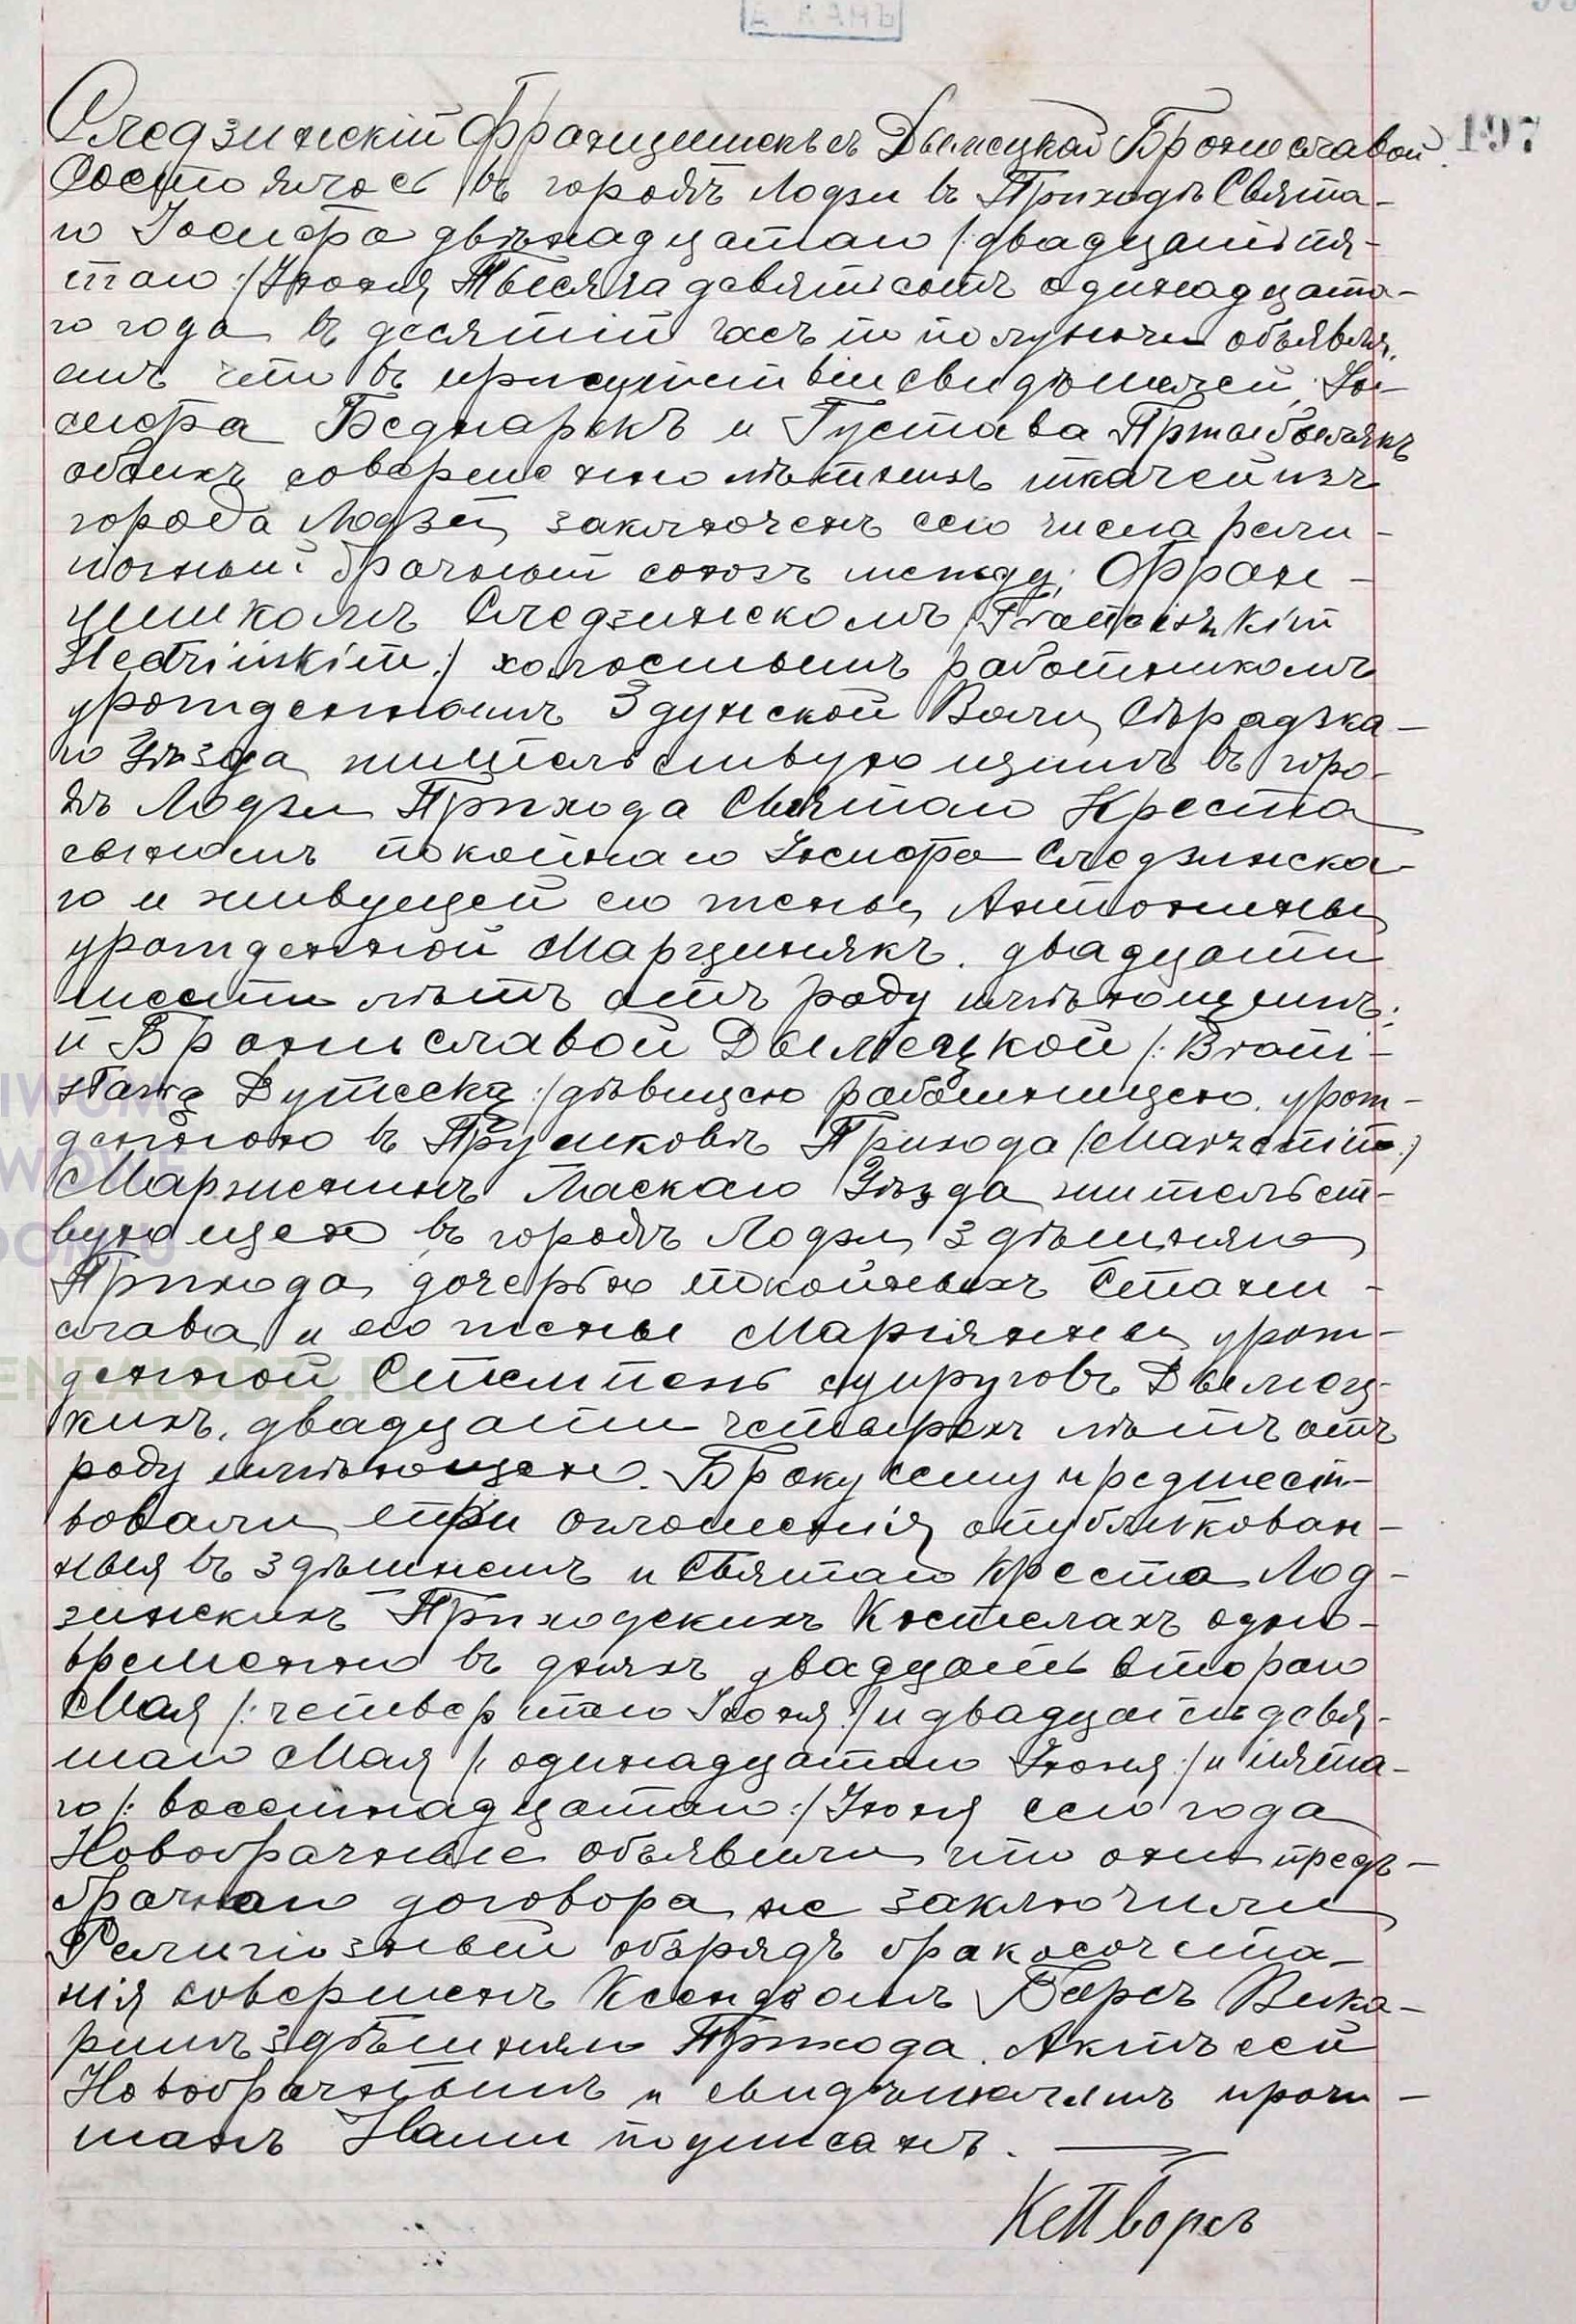 Следзинскій Францишекъ съ Дымецкой Брониславой
197
Состоялось въ городѣ Лодзи въ Приходѣ Свята-
го Іосифа двѣнадцатаго /:двадцать пя-
таго:/ Іюня Тысяча девятьсотъ одинадцата-
го года въ десятій часъ по полуночи объявля
емъ что въ присутствіи свидѣтелей, Іо-
сифа Беднарекъ и Густава
обоихъ совершеннолѣтнихъ ткачей изъ
города Лодзи, заключенъ сего числа рели-
гіозный брачный союзъ между, Фран-
цишкомъ Следзинскомъ /Franciszkiem
Sledzinskim:/ холостымъ работникомъ
урожденнымъ Здунской Воли, Сѣрадзка-
го Уѣзда жительствующимъ въ горо-
дѣ Лодзи Прихода Святаго Креста
сыномъ покойнаго Іосифа Следзинска-
го и живущей его жены Антонины
урожденной Марцинякъ. двадцати
шести лѣтъ отъ роду имѣющимъ;
и Брониславой Дымецкой /:Broni-
sławą Dymecką:/ дѣвицею работницею, урож-
денною въ Прушковѣ Прихода /:Marzenin:/
Марженинъ Ласкаго Уѣзда жительст-
вующею въ городѣ Лодзи, здѣшняго
Прихода, дочерью покойныхъ Стани-
слава и его жены Маріянны урож-
денной Стемпень супруговъ Дымец-
кихъ, двадцати четырехъ лѣтъ отъ
роду имѣющею. Браку сему предшест-
вовали три оглошенія опубликован-
ныя въ здѣшнемъ и Святаго Креста Лод-
зинскихъ Приходскихъ Костелахъ одно-
временно въ дняхъ двадцать втораго
Мая /:четвертаго Іюня:/ и двадцать девя-
таго Мая /:одинадцатаго Іюня:/ и пята-
го /:восемнадцатаго:/ Іюня сего года
Новобрачные объявили что они предъ-
брачнаго договора не заключили
Религіозный обърядъ бракосочета-
нія совершенъ Ксендзомъ Ворсъ Вика-
ріимъ здѣшняго Прихода. Актъ сей
Новобрачнымъ и свидѣтелямъ прочи-
танъ Нами подписанъ.